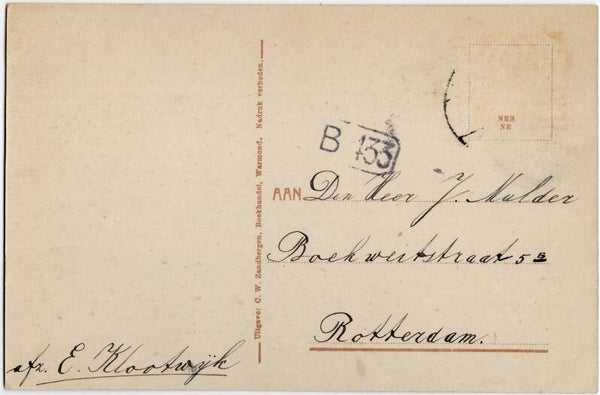 NES
NE
B 433
AAN Den Heer J. Mulder
Boekweitstraat 5ᴮ
Rotterdam.
afz. E. Klootwijk
Uitgave: C. W. Zandbergen, Boekhandel, Warmond, Nadruk verboden.